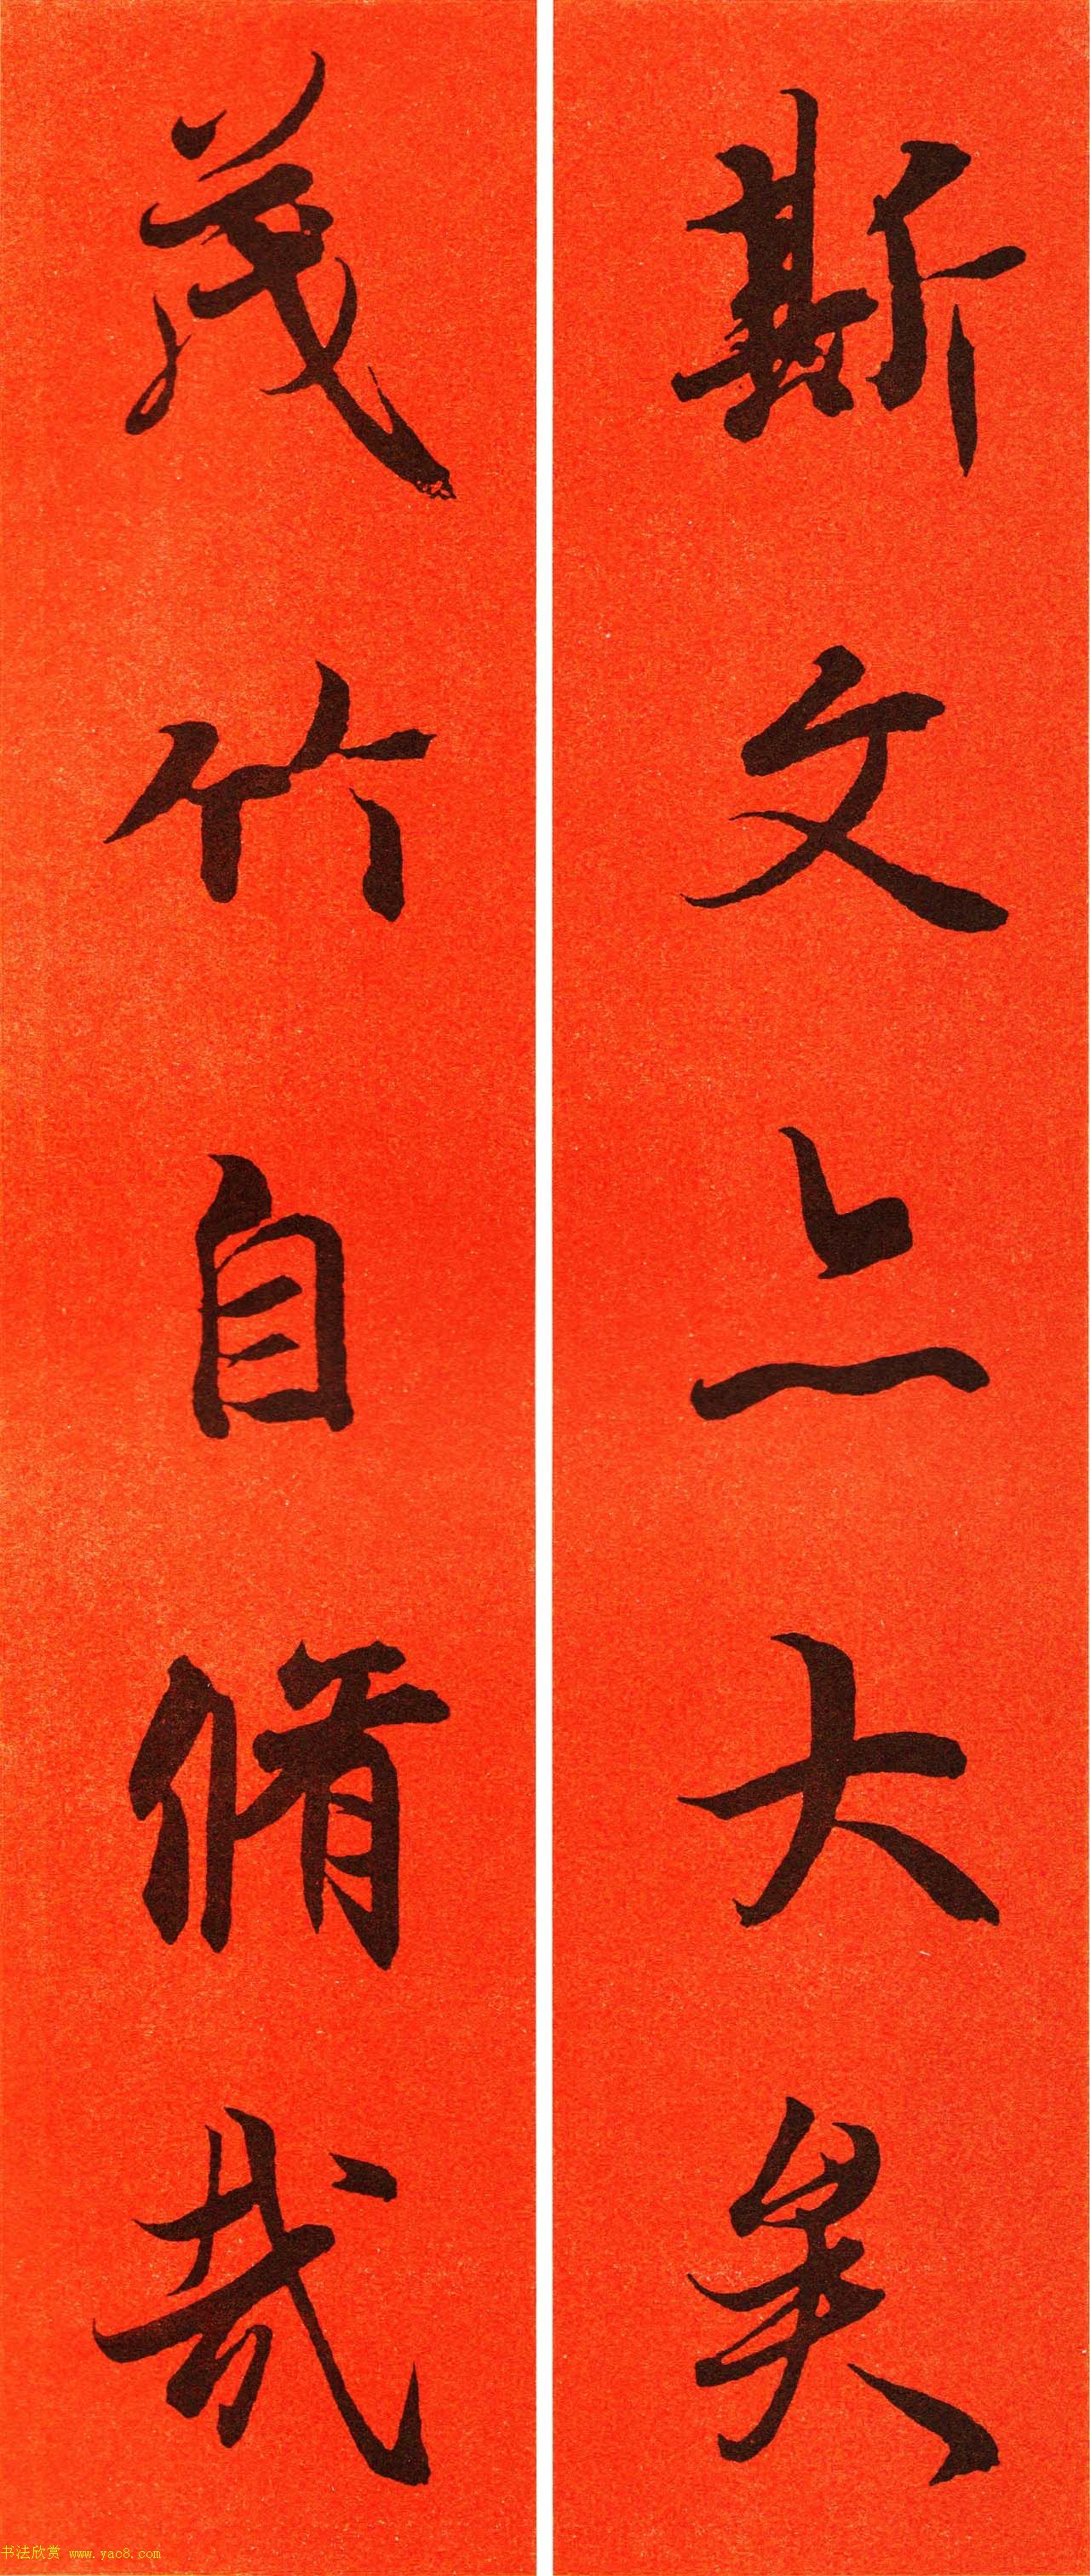 斯文上大矣
茂竹自脩哉
书法欣赏 www.yac8.com